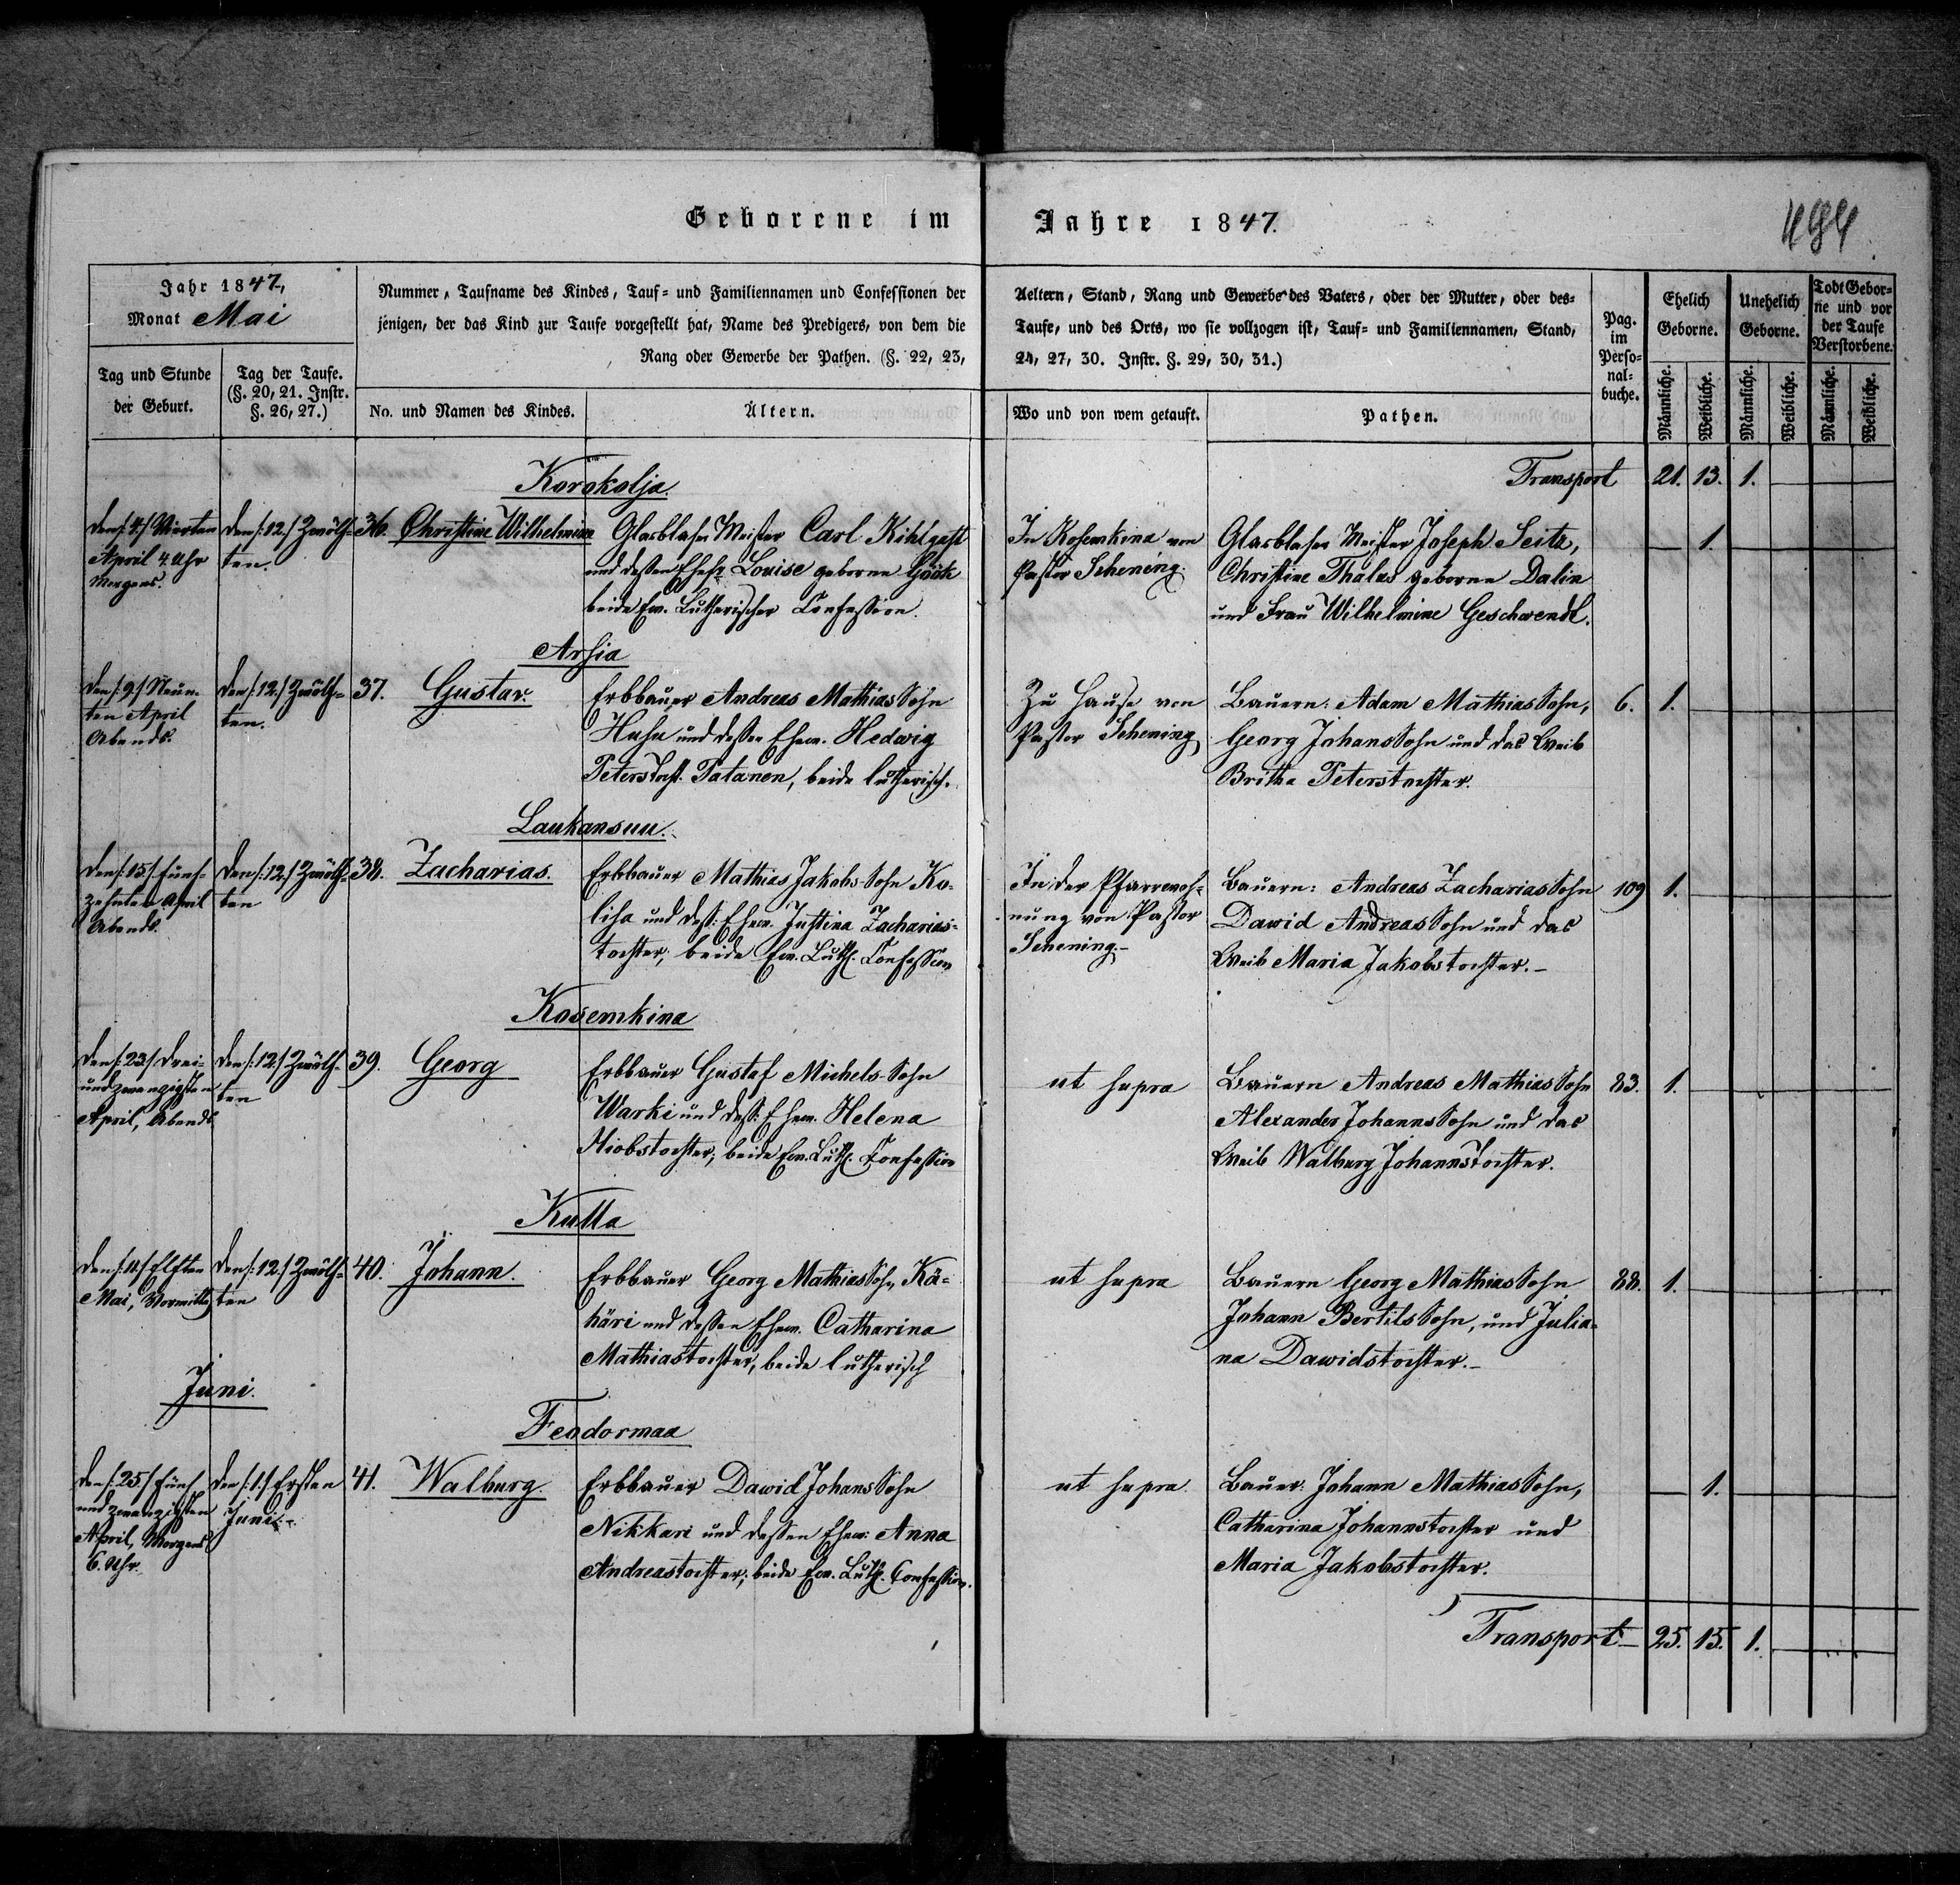 Geborene im Jahre 1847.
494
Jahr 1847,
Monat Mai
Tag und Stunde
der Geburt.
Tag der Taufe.
(§. 20, 21. Instr.
§. 26, 27.)
Nummer, Taufname des Kindes, Tauf= und Familiennamen und Confessionen der
jenigen, der das Kind zur Taufe vorgestellt hat, Name des Predigers, von dem die
Rang oder Gewerbe der Pathen. (§. 22, 23,
No. und Namen des Kindes.
Ältern.
Aeltern, Stand, Rang und Gewerbe des Vaters, oder der Mutter, oder des=
Taufe, und des Orts, wo sie vollzogen ist, Tauf= und Familiennamen, Stand,
24, 27, 30. Instr. §. 29, 30, 31.)
Wo und von wem getauft.
Pathen.
Pag.
im
Perso=
nal=
buche.
Ehelich
Geborne.
Unehelich
Geborne.
Todt Gebor=
ne und vor
der Taufe
Verstorbene.
Männliche.
Weibliche.
Männliche.
Weibliche.
Männliche.
Weibliche.
Transport 21. 13. 1.
Korokolja.
den /:4:/ Vierten
April 4. Uhr
Morgens.
den /:12:/ Zwölf=
ten.
36. Christine Wilhelmine
Glasblaser Meister Carl Kihlgast
und dessen Ehefr. Louise geborne Göök
beide Ev. Lutherischer Confession.
In Kosemkina von
Pastor Schening.
Glasblaser Meister Joseph Seitz,
Christine Thalus geborne Dalin
und Frau Wilhelmine Geschwendt.
1.
Arsia
den /:9:/ Neun=
ten April
Abends.
den /:12:/ Zwölf=
ten.
37. Gustav.
Erbbauer Andreas Mathias Sohn
Huhu und dessen Ehew. Hedwig
Peters Tocht. Tatanen, beide lutherisch.
Zu Hause von
Pastor Schening
Bauern: Adam Mathias Sohn,
Georg Johans Sohn und das Weib
Britha Peterstochter.
6. 1.
Laukansuu.
den /:15:/ Fünf=
zehnten April
Abends.
den /:12:/ Zwölf=
ten
38. Zacharias.
Erbbauer Mathias Jakobs Sohn Ko=
liha und dess: Ehew. Justina Zacharias=
tochter, beide Ev. Luth. Confession
In der Pfarrwoh=
nung von Pastor
Schening.-
Bauern: Andreas Zacharias Sohn
Dawid Andreas Sohn und das
Weib Maria Jakobstochter.-
109 1.
Kosemkina
den /:23:/ Drei=
undzwanzigsten
April, Abends
den /:12:/ Zwölf=
ten
39. Georg
Erbbauer Gustaf Michels Sohn
Warki und dess: Ehew. Helena
Hiobstochter, beide Ev. Luth. Confession
ut supra
Bauern Andreas Mathias Sohn
Alexander Johanns Sohn und das
Weib Walburg Johannstochter.
83. 1.
Kulla
den /:11:/ Elften
Mai, Vormittag
den /:12:/ Zwölf=
ten
40. Johann.
Erbbauer Georg Mathias Sohn, Kä=
häri und dessen Ehew. Catharina
Mathiastochter, beide lutherisch
ut supra
Bauern Georg Mathias Sohn
Johann Bertils Sohn, und Julia=
na Dawidstochter.-
88. 1.
Juni.
Feodormaa
den /:25:/ Fünf
und zwanzigsten
April, Morgens
6. Uhr.
den /:1:/ Ersten
Juni.-
41. Walburg.
Erbbauer Dawid Johans Sohn
Nikkari und dessen Ehew: Anna
Andreastochter, beide Ev. Luth. Confession.
ut supra
Bauer: Johann Mathias Sohn,
Catharina Johannstochter und
Maria Jakobstochter.
1.
Transport 25. 15. 1.